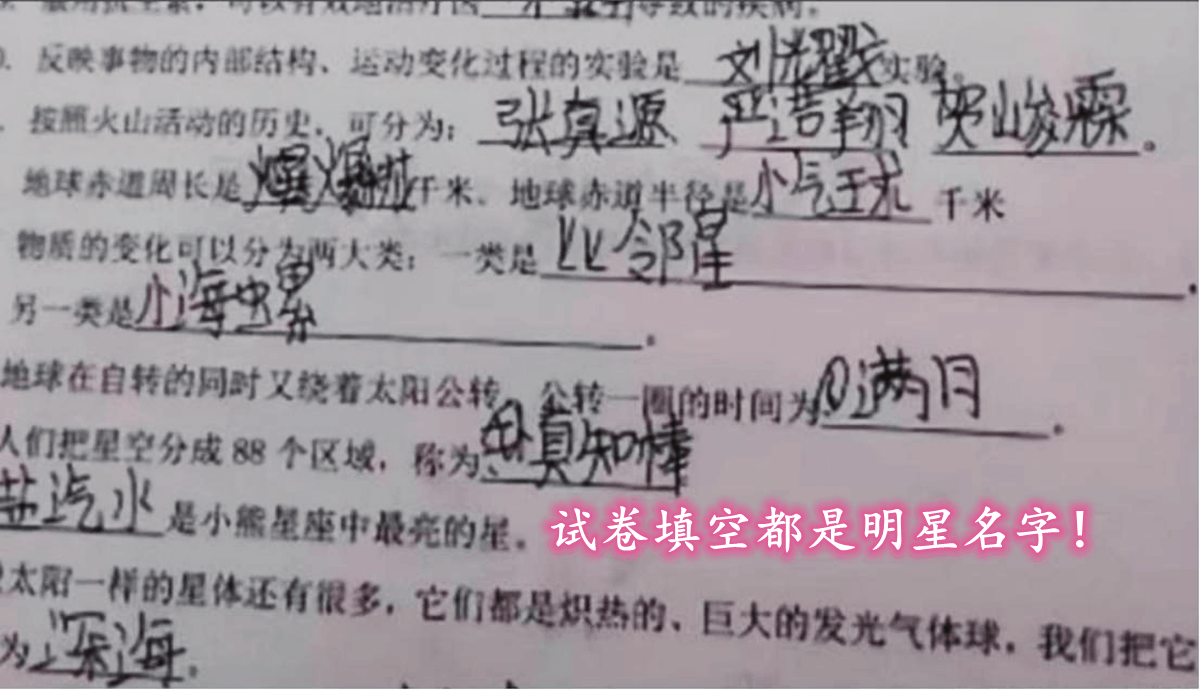 服用抗生素，可以有效地治疗因
导致的疾病。
0. 反映事物的内部结构、运动变化过程的实验是 刘耀 实验。
. 按照火山活动的历史，可分为：张真源、严浩翔 贺峻霖。
地球赤道周长是 千米、地球赤道半径是 小气球 千米
物质的变化可以分为两大类：一类是 邻星
另一类是 小海 。
地球在自转的同时又绕着太阳公转，公转一圈的时间为 满月 。
人们把星空分成 88 个区域，称为 真知棒
盐汽水 是小熊星座中最亮的星。
试卷填空都是明星名字！
太阳一样的星体还有很多，它们都是炽热的、巨大的发光气体球，我们把它
为 深海 。